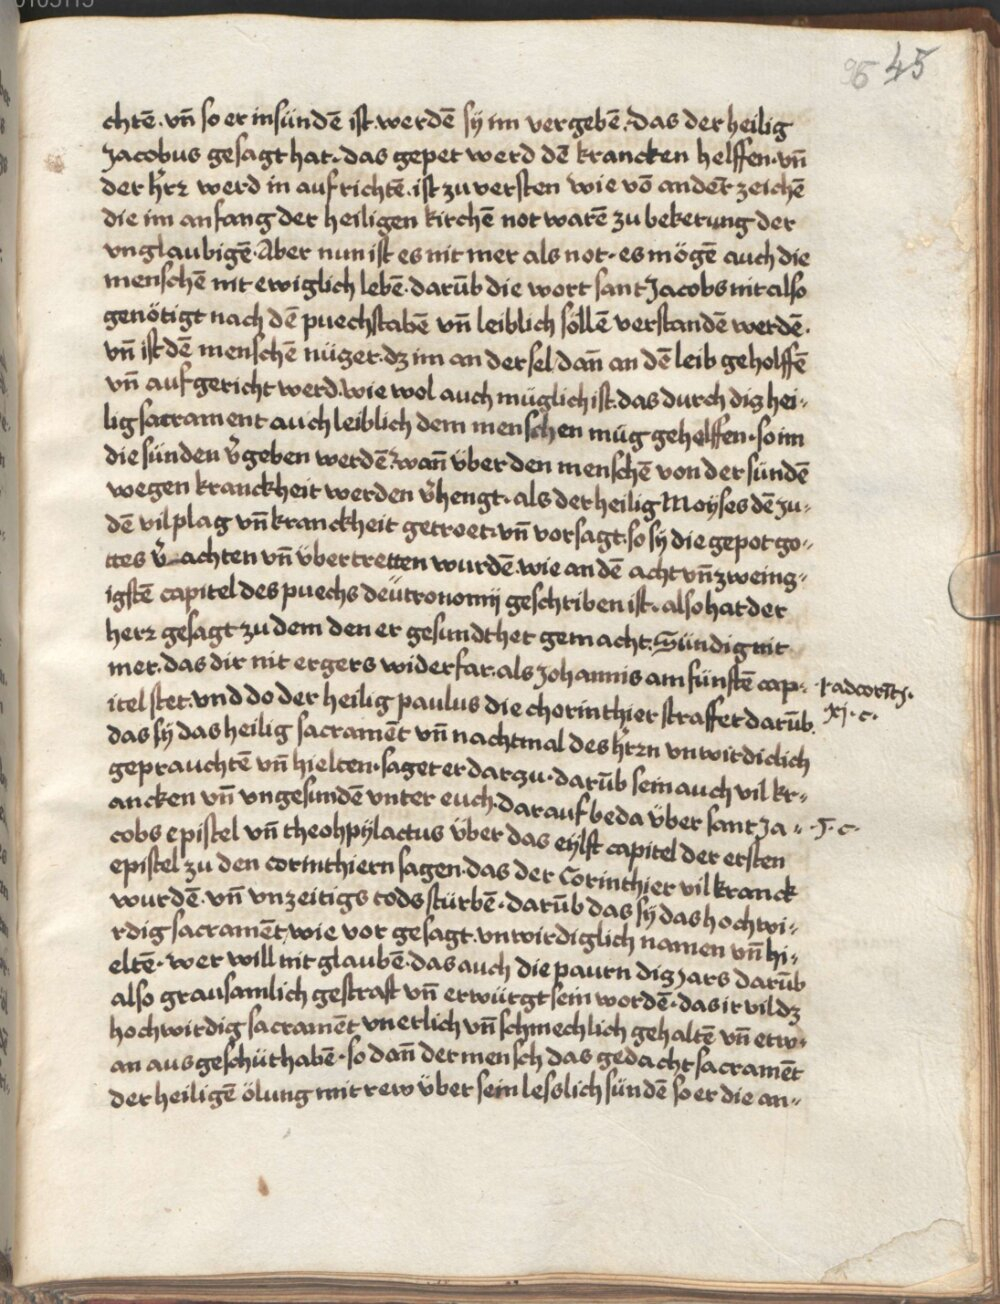 96 45
chtē. vn̄ so er in sündē ist. werdē sÿ im vergebē. das der heilig
Jacobus gesagt hat. das gepet werd dē krancken helffen. vn̄
der hr̄z werd in aufrichtē. ist zu versten wie vō anderr̄ zeichē
die im anfang der heiligen kirchē not warē zu bekerung der
vnglaubigē. Aber nun ist es nit mer als not. es mögē auch die
menschē nit ewiglich lebē. darūb die wort sant Jacobs nit also
genötigt nach dē puechstabē vn̄ leiblich sollē verstandē werdē.
vn̄ ist dē menschē nüger. dz im an der sel dan̄ an dē leib geholffē
vn̄ aufgericht werd. wie wol auch müglich ist. das durch dig hei-
lig sacrament auch leiblich dem menschen müg gehelffen. so im
die sünden v̄geben werdē. wan̄ über den menschē von der sündē
wegen kranckheit werden v̄hengt. als der heilig Moyses dē Ju-
dē vil plag vn̄ kranckheit getroet. vn̄ vorsagt. so sÿ die gepot go-
ttes v̄-achten vn̄ übertretten wurdē. wie an dē acht vn̄ zweing-
igstē capitel des puechs deütronomij geschriben ist. also hat der
herz gesagt zu dem den er gesundt het gemacht. Sündig nit
mer. das dir nit ergers widerfar. als Johannis am fünftē cap-
itel stet. vnd do der heilig paulus die chorinthier straffet darūb.
j. ad corīt͞j.
xj. c.
das sÿ das heilig sacramēt vn̄ nachtmal des hr̄zn vnwirdiclich
geprauchtē vn̄ hielten. saget er darzu. darūb sein auch vil kr-
ancken vn̄ vngesundē vnter euch. darauf beda über sant Ja-
.5. c.
cobs epistel vn̄ theohpÿlactus über das eÿlft capitel der ersten
epistel zu den corinthiern sagen. das der Corinthier vil kranck
wurdē. vn̄ vnzeitigs tods stürbē. darūb das sÿ das hochwi-
rdig sacramēt, wie vor gesagt. vnwirdiglich namen vn̄ hi-
eltē. wer will nit glaubē. das auch die paurn dig Jars darūb
also grausamlich gestraft vn̄ erwürgt sein wordē. das ir vil dz
hochwirdig sacramēt vnerlich vn̄ schmechlich gehaltē vn̄ etw-
an ausgeschüt habē. so dan̄ der mensch das gedacht sacramēt
der heiligē ölung mit rew über sein lesslich sündē so er die an-